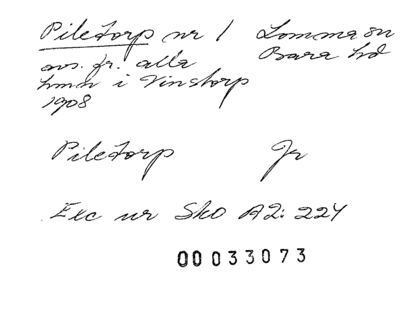 Piletorp nr 1 Lomma sn
avs. fr. alla Bara hd
hmn i Vinstorp
1908
Piletorp Jr
Exc nr Sko A2: 224
00033073